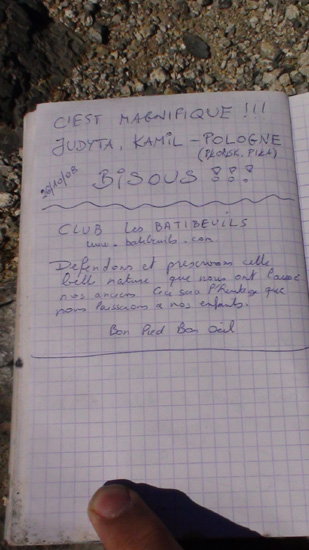 C'EST MAGNIFIQUE !!!
JUDYTA, KAMIL - POLOGNE
(PŁOŃSK, PIŁA)
30/10/08
BISOUS !!!
CLUB Les BATIBEUILS
www.batibeuils.com
Defendons et preservons cette
belle nature que nous ont laissé
nos anciens. Ceci sera l'heritage que
nous laisserons a nos enfants.
Bon Pied Bon Oeil